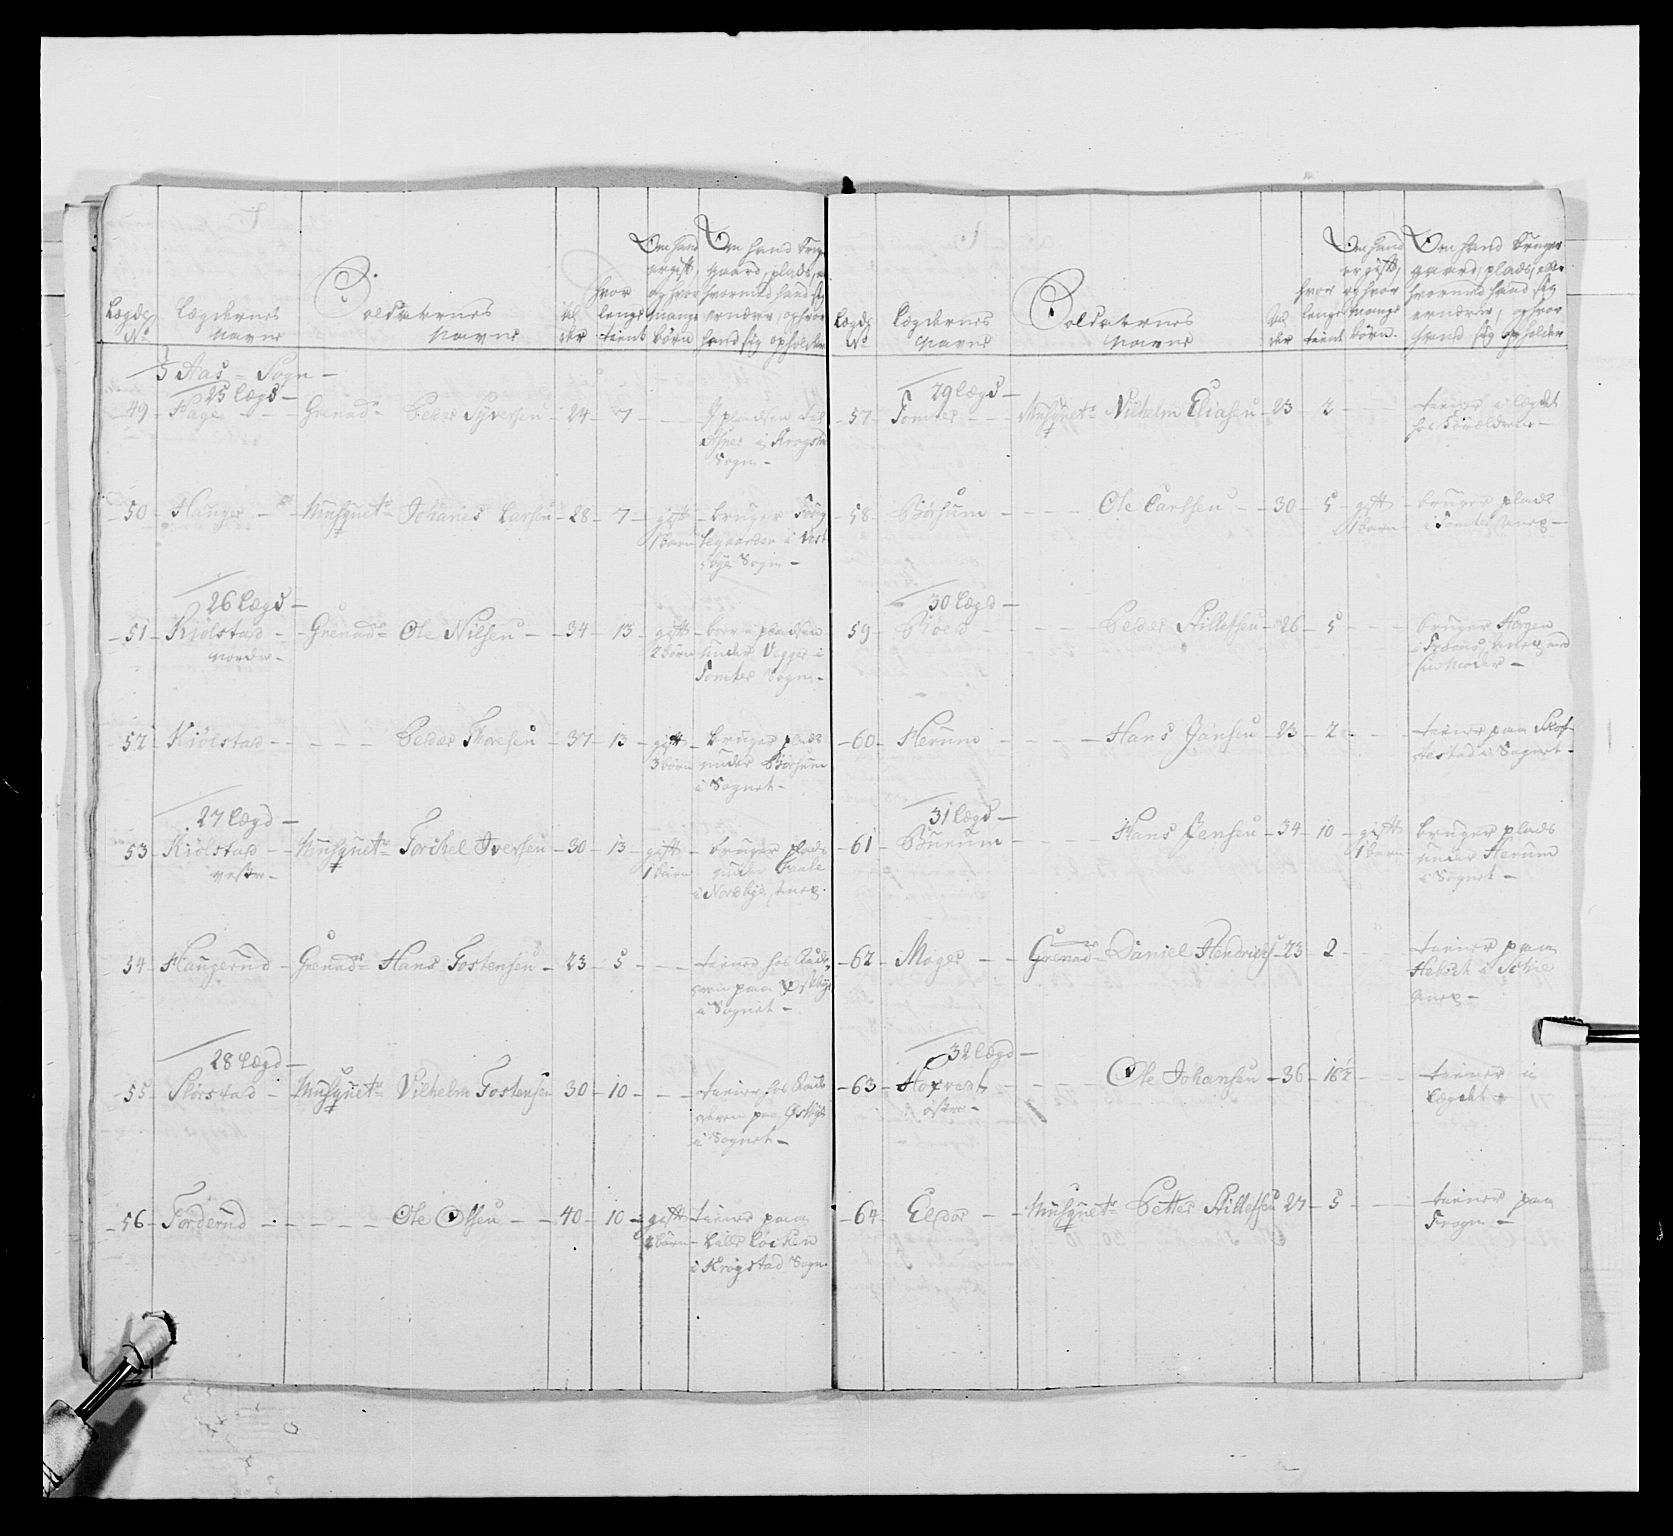 Lægds No
Lægdernes Navne
Soldaternes Navne
Al der
hvor lenge tient
Om hand er gift, og hvor mange børn
Om hand bruge gaard, plads, hvormed hand sig ernærer, og hvor hand sig opholder
5 Aas Sogn
25 Lægd
49 Hage Grenad Peder Syversen 24 7
i Krogstad Sogn
50 Hauger Musquet Johanes Larsen 28 7 gift 1 barn bruger
i Vest bye Sogn
26 Lægd
51 Kiølstad Nordre Grenad Ole Nilsen 34 13 gift 2 børn boer i pladsen under Vegger i Tomter Sogn
52 Kiølstad Peder Thoresen 37 13 gift 3 børn bruger plads under Børsum i Sognet
27 Lægd
53 Kiølstad vestre Musquet Torchel Iversen 30 13 gift 1 barn bruger plads under i Nordbye Anex
54 Haugerud Grenad Hans Tostensen 23 5 tiener hos paa Østbye i Sognet
28 Lægd
55 Skorstad Musquet Vilhelm Tostensen 30 10 tiener hos paa Østbye i Sognet
56 Forderud Ole Olsen 40 10 gift børn tiener paa Lille Løcken i Krogstad Sogn
Lægds No
Lægdernes Navne
Soldaternes Navne
Al der
hvor lenge tient
Om hand er gift, og hvor mange børn
Om Hand bruger gaard, plads, eller hvormed hand sig ernærer, og hvor hand sig opholder
29 Lægd
57 Tomter Musquet Vilhelm Eliasen 23 2 tiener i Lægdet hos Forældrene
58 Børsum Ole Carlsen 30 5 gift 1 barn bruger plads i Tomter Anex
30 Lægd
59 Peder Killelsen 26 5 bruger Horgen i Froens Anex med sin Moder
60 Herum Hans Jansen 23 2 tiener paa i Sognet
31 Lægd
61 Burum Hans Jensen 34 10 gift 1 barn bruger plads under Herum i Sognet
62 Moger Grenad Daniel Hendrichs 23 2 tiener paa i Schie Anex
32 Lægd
63 østre Ole Johansen 36 18½ tiener i Lægdet
64 Elgdor Musquet Petter Killelsen 27 5 tiener paa Frogn